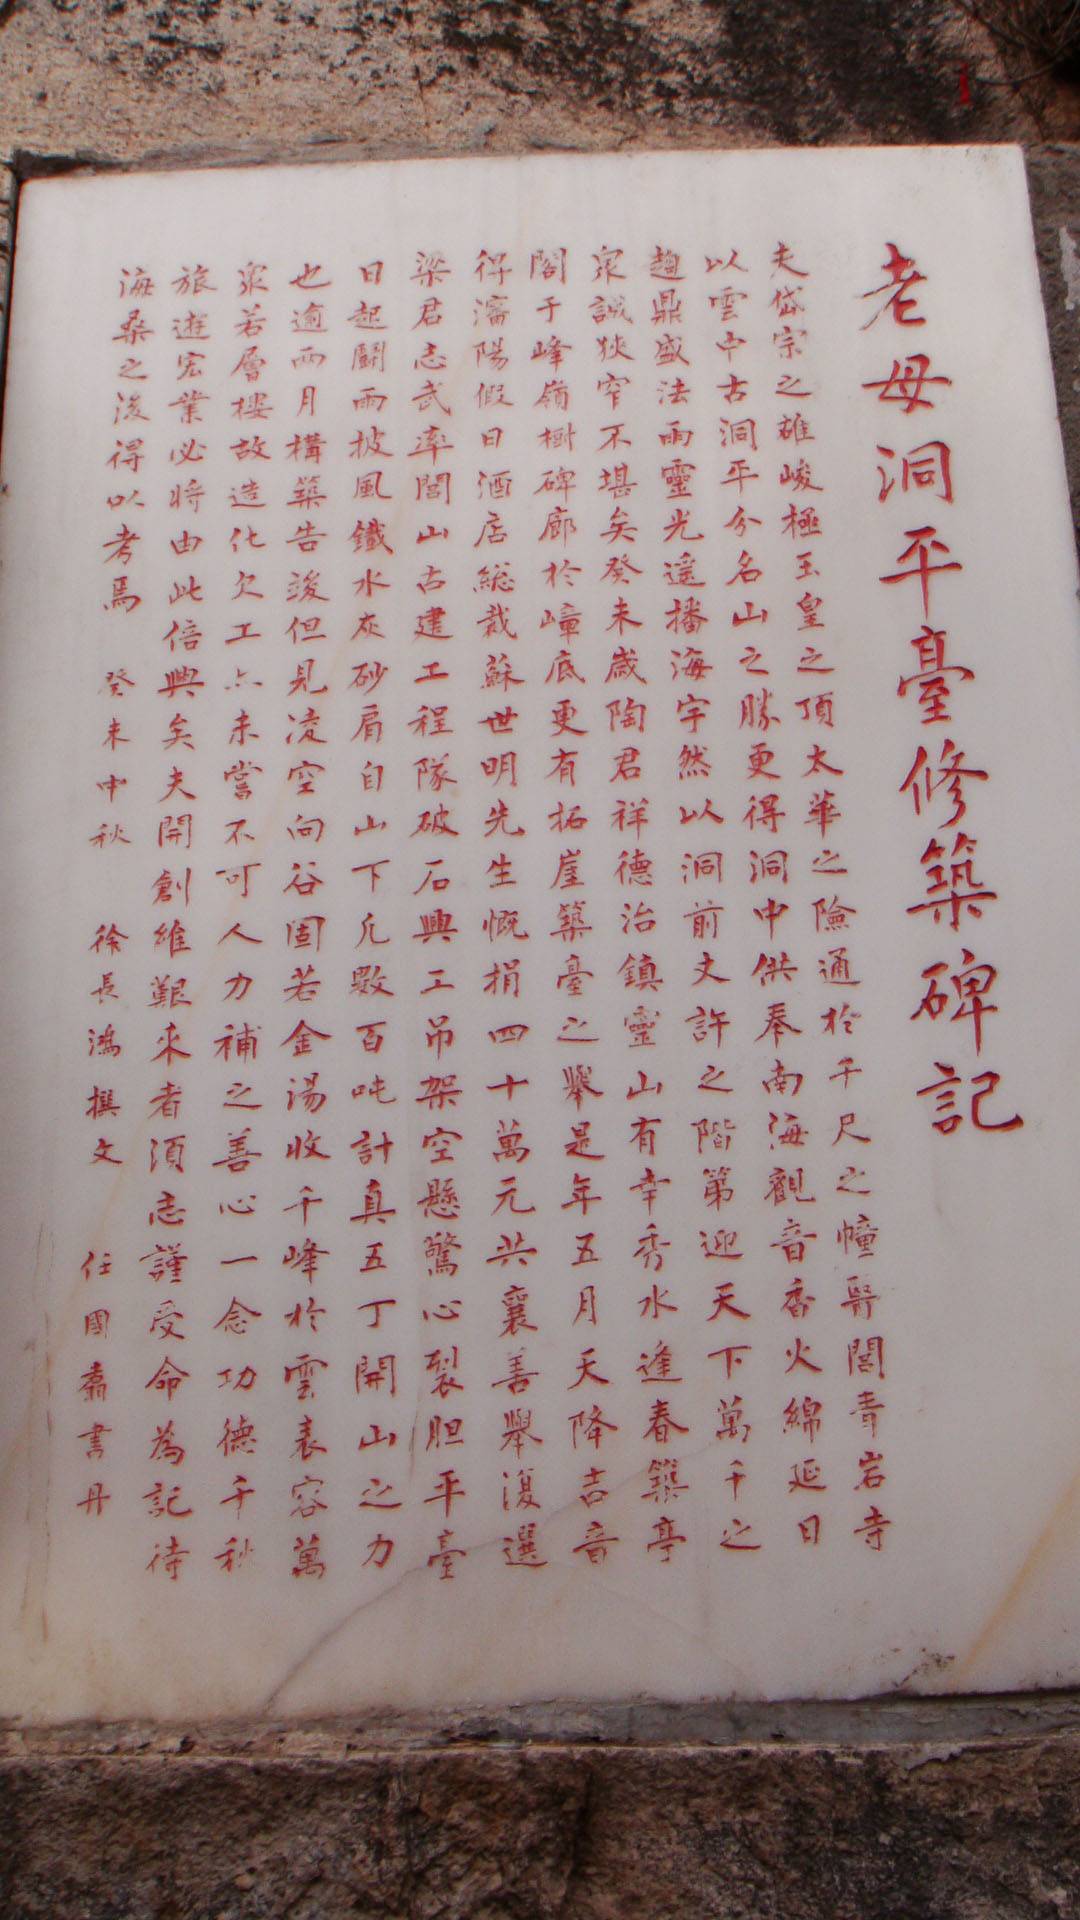 老母洞平臺修築碑記
夫岱宗之雄峻極玉皇之頂太華之險通於千尺之幢醫閭青岩寺
以雲中古洞平分名山之勝更得洞中供奉南海觀音香火綿延日
趨鼎盛法雨靈光遥播海宇然以洞前丈許之階第迎天下萬千之
衆誠狹窄不堪矣癸未歲陶君祥德治鎮靈山有幸秀水逢春築亭
閣于峰嶺樹碑廊於嶂底更有拓崖築臺之舉是年五月天降吉音
得瀋陽假日酒店総裁蘇世明先生慨捐四十萬元共襄善舉復選
梁君志武率閭山古建工程隊破石興工吊架空懸驚心裂胆平臺
日起鬪雨披風鐵水灰砂肩自山下凢數百吨計真五丁開山之力
也逾兩月構築告竣但見凌空向谷固若金湯收千峰於雲表容萬
衆若層樓故造化欠工亦未嘗不可人力補之善心一念功德千秋
旅遊宏業必將由此倍興矣夫開創維艱來者須志謹受命為記待
海桑之後得以考焉 癸未中秋 徐長鴻撰文 任國燾書丹